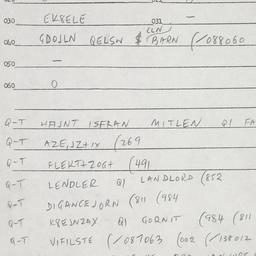 030 EKSELE 031 —
(LN)
040 GDOJLN QELSN $ BARN (/088060
050 —
060 0
Q-T HAJNT ISFRAN MITLEN Q1 FA
Q-T AZE,JZ+IX (269
Q-T FLEKT+ZOG+ (491
Q-T LENDLER Q1 LANDLORD (852
Q-T DIGANCEJORN (811 (984
Q-T Q1 GORNIT (984 (811
Q-T VIFILSTE (/087063 (002 (/138012